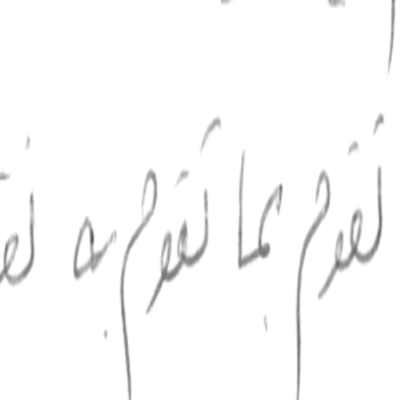 نقوم بما نقوم به